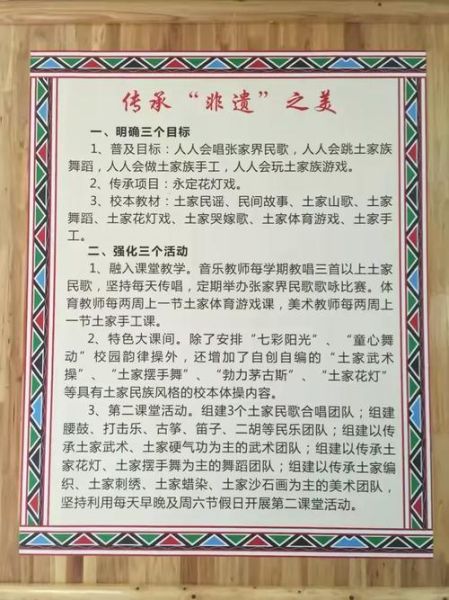 传承“非遗”之美
一、明确三个目标
1、普及目标：人人会唱张家界民歌，人人会跳土家族
舞蹈，人人会做土家族手工，人人会玩土家族游戏。
2、传承项目：永定花灯戏。
3、校本教材：土家民谣、民间故事、土家山歌、土家
舞蹈、土家花灯戏、土家哭嫁歌、土家体育游戏、土家手
工。
二、强化三个活动
1、融入课堂教学。音乐教师每学期教唱三首以上土家
民歌，坚持每天传唱，定期举办张家界民歌歌咏比赛。体
育教师每两周上一节土家体育游戏课，美术教师每两周上
一节土家手工课。
2、特色大课间。除了安排“七彩阳光”、“童心舞
动”校园韵律操外，还增加了自创自编的“土家武术
操”、“土家摆手舞”、“勃力茅古斯”、“土家花灯”
等具有土家民族风格的校本体操内容。
3、第二课堂活动。组建3个土家民歌合唱团队；组建
腰鼓、打击乐、古筝、笛子、二胡等民乐团队；组建以传
承土家武术、土家硬气功为主的武术团队；组建以传承土
家花灯、土家摆手舞为主的舞蹈团队；组建以传承土家编
织、土家刺绣、土家蜡染、土家沙石画为主的美术团队，
坚持利用每天早晚及周六节假日开展第二课堂活动。